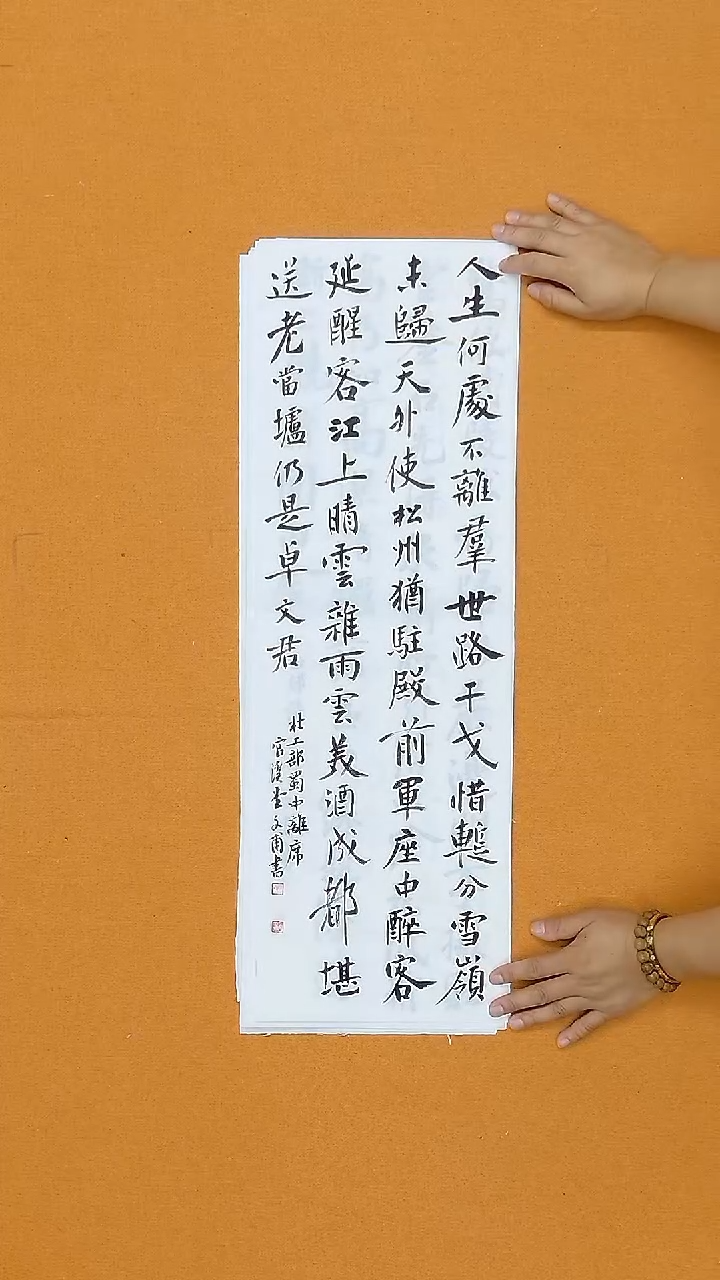 人生何處不離羣世路干戈惜暫分雪嶺
未歸天外使松州猶駐殿前軍座中醉客
延醒客江上晴雲雜雨雲美酒成都堪
送老當壚仍是卓文君
杜工部蜀中離席
文甫書